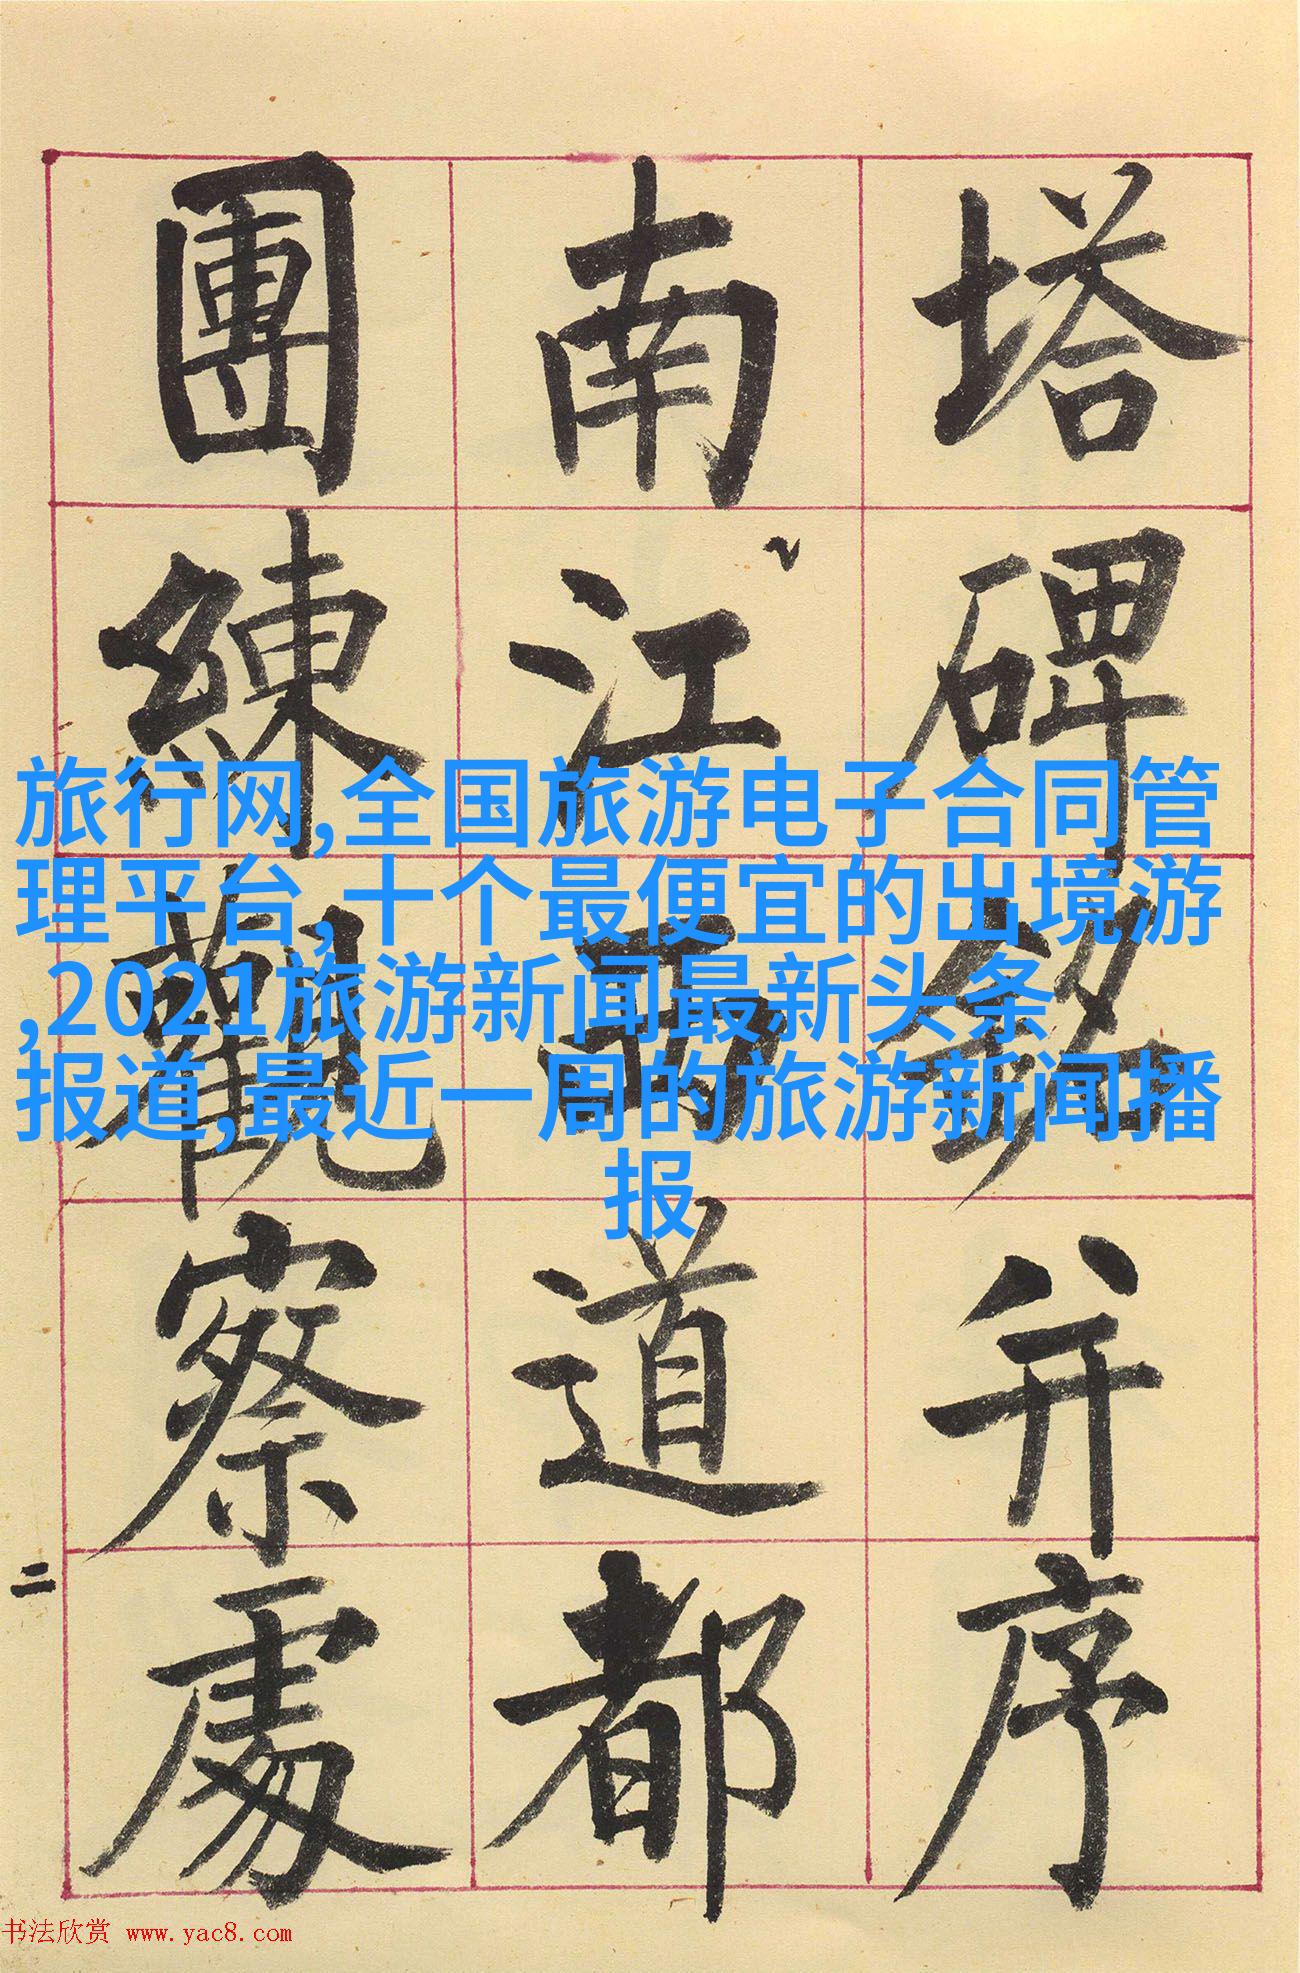 塔碑銘并序
南江西道都
團練觀察處
二
旅行网,全国旅游电子合同管
理平台,十个最便宜的出境游
,2021旅游新闻最新头条
报道,最近一周的旅游新闻播
报
书法欣赏 www.yac8.com